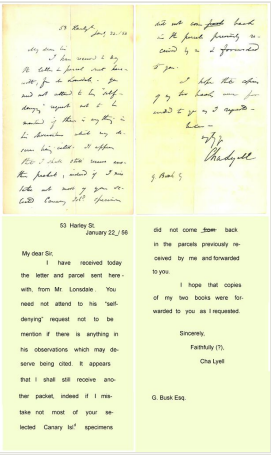 53 Harley St.
Jany 22/56
My dear Sir
I have received today
the letter and parcel sent here-
with, from Mr. Lonsdale. You
need not attend to his "self-
denying" request not to be
mention if there is anything in
his observations which may de-
serve being cited. It appears
that I shall still receive ano-
ther packet, indeed if I mis-
take not most of your se-
lected Canary Isld specimens
did not come from back
in the parcels previously re-
ceived by me & forwarded
to you.
I hope that copies
of my two books were for-
warded to you as I requested.
Cha Lyell
G. Busk Esq
53 Harley St.
January 22_/ 56
My dear Sir.
I have received today
the letter and parcel sent here -
with, from Mr. Lonsdale. You
need not attend to his "self-
denying" request not to be
mention if there is anything in
his observations which may de-
serve being cited. It appears
that I shall still receive ano-
ther packet, indeed if I mis-
take not most of your se-
lected Canary Isl.d specimens
did not come from back
in the parcels previously re-
ceived by me and forwarded
to you.
I hope that copies
of my two books were for-
warded to you as I requested.
Sincerely,
Faithfully (?),
Cha Lyell
G. Busk Esq.